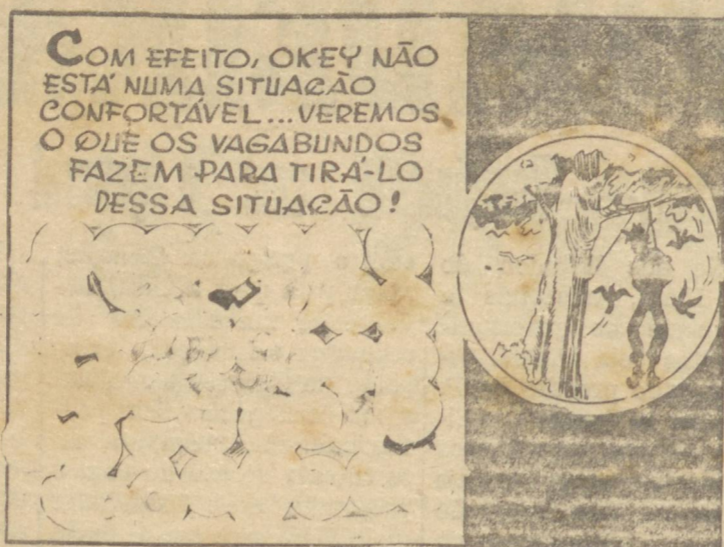 COM EFEITO, OKEY NÃO
ESTÁ NUMA SITUAÇÃO
CONFORTÁVEL... VEREMOS
O QUE OS VAGABUNDOS
FAZEM PARA TIRÁ-LO
DESSA SITUAÇÃO!